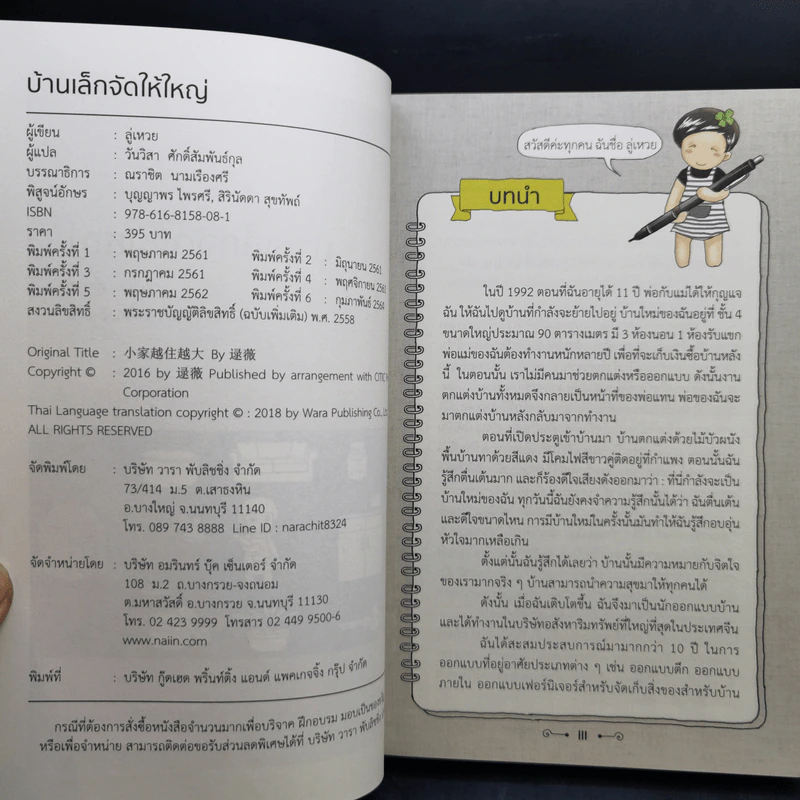 บ้านเล็กจัดให้ใหญ่
ผู้เขียน : ลู่เหวย
ผู้แปล : วันวิสา ศักดิ์สัมพันธ์กุล
บรรณาธิการ : ณราชิต นามเรืองศรี
พิสูจน์อักษร : บุญญาพร ไพรศรี, สิรินัดดา สุขทัพภ์
ISBN : 978-616-8158-08-1
ราคา : 395 บาท
พิมพ์ครั้งที่ 1 : พฤษภาคม 2561 พิมพ์ครั้งที่ 2 : มิถุนายน 2561
พิมพ์ครั้งที่ 3 : กรกฎาคม 2561 พิมพ์ครั้งที่ 4 : พฤศจิกายน 2561
พิมพ์ครั้งที่ 5 : พฤษภาคม 2562 พิมพ์ครั้งที่ 6 : กุมภาพันธ์ 2564
สงวนลิขสิทธิ์ : พระราชบัญญัติลิขสิทธิ์ (ฉบับเพิ่มเติม) พ.ศ. 2558
Original Title : 小家越住越大 By 逯薇
Copyright © : 2016 by 逯薇 Published by arrangement with
Corporation
Thai Language translation copyright © : 2018 by Wara Publishing Co.,
ALL RIGHTS RESERVED
จัดพิมพ์โดย : บริษัท วารา พับลิชชิ่ง จำกัด
73/414 ม.5 ต.เสาธงหิน
อ.บางใหญ่ จ.นนทบุรี 11140
โทร. 089 743 8888 Line ID : narachit8324
จัดจำหน่ายโดย : บริษัท อมรินทร์ บุ๊ค เซ็นเตอร์ จำกัด
108 ม.2 ถ.บางกรวย-จงถนอม
ต.มหาสวัสดิ์ อ.บางกรวย จ.นนทบุรี 11130
โทร. 02 423 9999 โทรสาร 02 449 9500-6
www.naiin.com
พิมพ์ที่ : บริษัท กู๊ดเฮด พริ้นท์ติ้ง แอนด์ แพคเกจจิ้ง กรุ๊ป จำกัด
กรณีที่ต้องการสั่งซื้อหนังสือจำนวนมากเพื่อบริจาค ฝึกอบรม มอบเป็นของขวัญ
หรือเพื่อจำหน่าย สามารถติดต่อขอรับส่วนลดพิเศษได้ที่ บริษัท วารา พับลิชชิ่ง
สวัสดีค่ะทุกคน ฉันชื่อ ลู่เหวย
บทนำ
ในปี 1992 ตอนที่ฉันอายุได้ 11 ปี พ่อกับแม่ได้ให้กุญแจ
ฉัน ให้ฉันไปดูบ้านที่กำลังจะย้ายไปอยู่ บ้านใหม่ของฉันอยู่ที่ ชั้น 4
ขนาดใหญ่ประมาณ 90 ตารางเมตร มี 3 ห้องนอน 1 ห้องรับแขก
พ่อแม่ของฉันต้องทำงานหนักหลายปี เพื่อที่จะเก็บเงินซื้อบ้านหลัง
นี้ ในตอนนั้น เราไม่มีคนมาช่วยตกแต่งหรือออกแบบ ดังนั้นงาน
ตกแต่งบ้านทั้งหมดจึงกลายเป็นหน้าที่ของพ่อแทน พ่อของฉันจะ
มาตกแต่งบ้านหลังกลับมาจากทำงาน
ตอนที่เปิดประตูเข้าบ้านมา บ้านตกแต่งด้วยไม้บัวผนัง
พื้นบ้านทาด้วยสีแดง มีโคมไฟสีขาวคู่ติดอยู่ที่กำแพง ตอนนั้นฉัน
รู้สึกตื่นเต้นมาก และก็ร้องดีใจเสียงดังออกมาว่า : ที่นี่กำลังจะเป็น
บ้านใหม่ของฉัน ทุกวันนี้ฉันยังคงจำความรู้สึกนั้นได้ว่า ฉันตื่นเต้น
และดีใจขนาดไหน การมีบ้านใหม่ในครั้งนั้นมันทำให้ฉันรู้สึกอบอุ่น
หัวใจมากเหลือเกิน
ตั้งแต่นั้นฉันรู้สึกได้เลยว่า บ้านนั้นมีความหมายกับจิตใจ
ของเรามากจริง ๆ บ้านสามารถนำความสุขมาให้ทุกคนได้
ดังนั้น เมื่อฉันเติบโตขึ้น ฉันจึงมาเป็นนักออกแบบบ้าน
และได้ทำงานในบริษัทอสังหาริมทรัพย์ที่ใหญ่ที่สุดในประเทศจีน
ฉันได้สะสมประสบการณ์มามากกว่า 10 ปี ในการ
ออกแบบที่อยู่อาศัยประเภทต่าง ๆ เช่น ออกแบบตึก ออกแบบ
ภายใน ออกแบบเฟอร์นิเจอร์สำหรับจัดเก็บสิ่งของสำหรับบ้าน
III